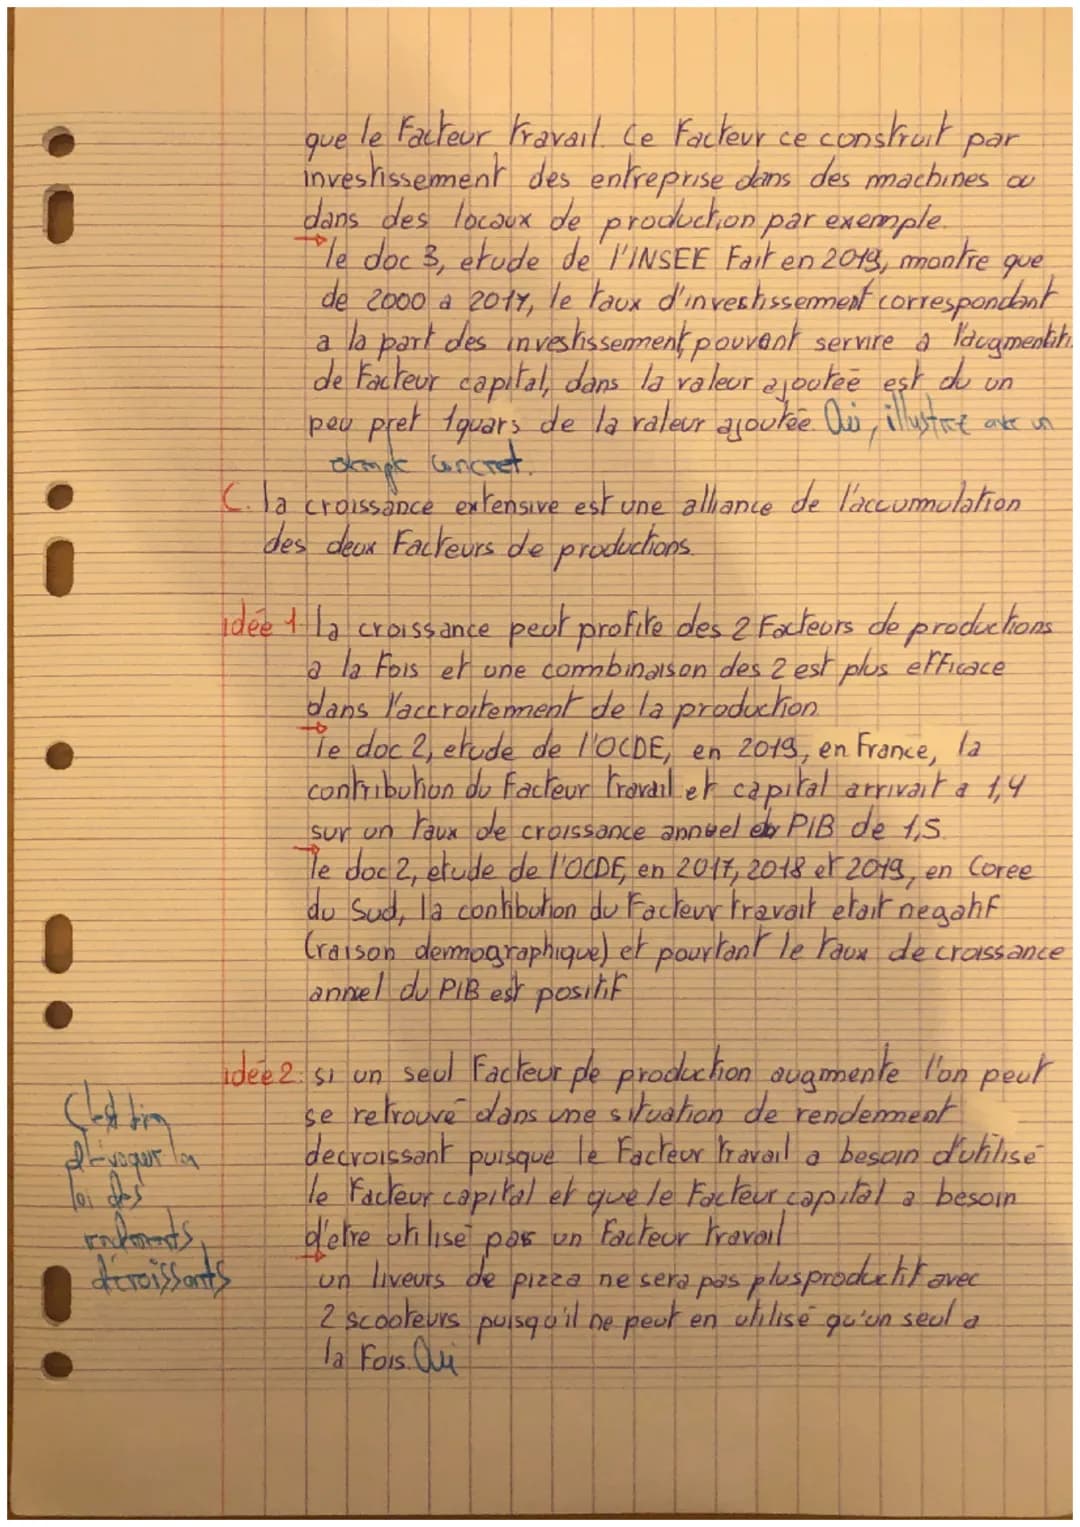 que le Facteur travail. Ce Facteur ce construit par
investissement des entreprise dans des machines ou
dans des locaux de production par exemple.
le doc 3, etude de l'INSEE Fait en 2019, montre que
de 2000 a 2017, le taux d'investissement correspondant
a la part des investissement, pouvant servire a l'augmentati
de Facteur capital, dans la valeur ajoutée est du un
peu pret 1quars de la valeur ajoutée. Oui, illustrez avec un
exemple concret.
C. la croissance extensive est une alliance de l'accumulation
des deux Facteurs de productions.
idée 1 la croissance peut profite des 2 Facteurs de productions
a la Fois et une combinaison des 2 est plus efficace
dans l'accroitement de la production
le doc 2, etude de l'OCDE, en 2019, en France, la
contribution du Facteur travail et capital arrivait a 1,4
sur un taux de croissance annuel du PIB de 1,5.
le doc 2, etude de l'OCDE, en 2017, 2018 et 2019, en Coree
du Sud, la contibution du Facteur travait etait negatif
(raison demographique) et pourtant le taux de croissance
annuel du PIB est positif
idée 2: si un seul Facteur de production augmente l'on peut
se retrouvé dans une situation de rendement
decroissant puisque le Facteur travail a besoin d'utilisé
le Facteur capital et que le Facteur capital a besoin
d'etre utilisé par un Facteur travail
un liveurs de pizza ne sera pas plus productif avec
2 scooteurs puisqu'il ne peut en utilisé qu'un seul a
la Fois. Oui
C'est bien
d'évoquer la
loi des
rendements
décroissants